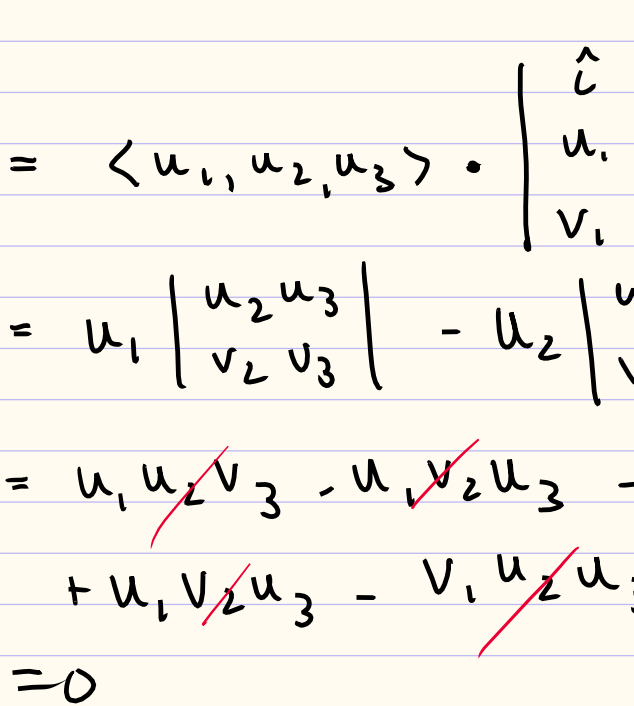 = <u₁, u₂, u₃> · | î
u₁
v₁
= u₁ | u₂ u₃ | - u₂ |
v₂ v₃
= u₁u₂v₃ - u₁v₂u₃ -
+ u₁v₂u₃ - v₁u₂u₃
= 0